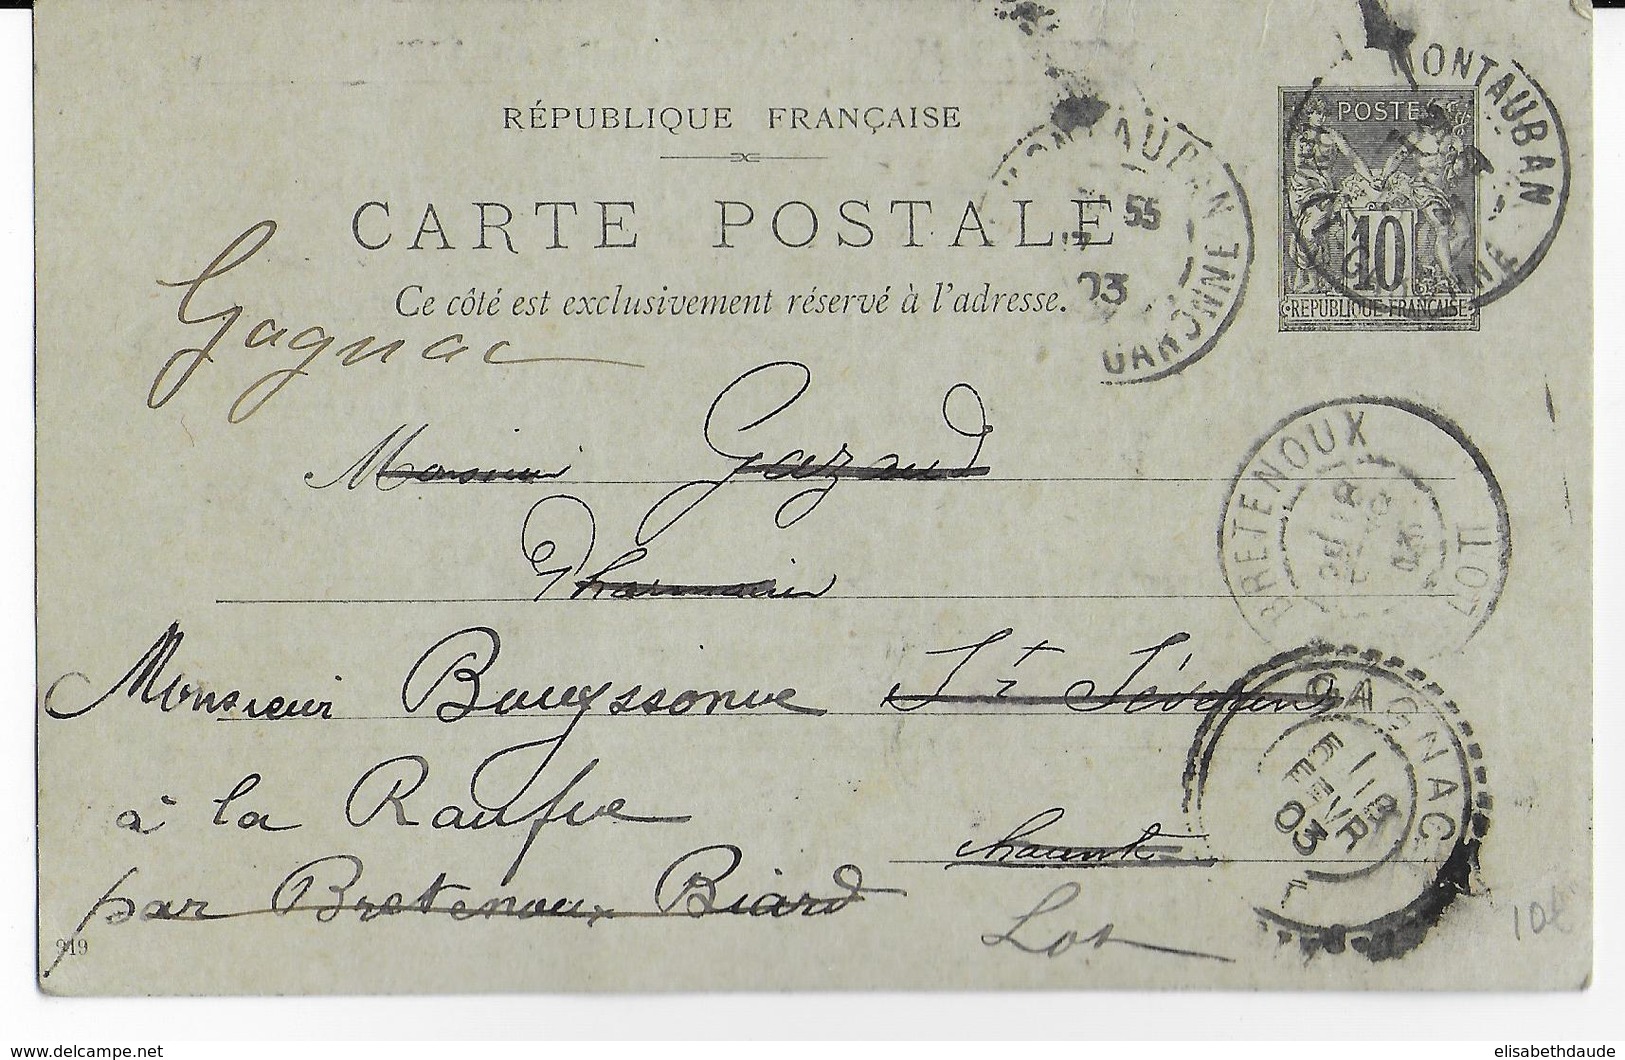 MONTAUBAN
POSTES
10
REPUBLIQUE FRANÇAISE
RÉPUBLIQUE FRANÇAISE
CARTE POSTALE
55
03
GARONNE
Ce côté est exclusivement réservé à l'adresse.
Gagnac
Monsieur Gazaud
BRETENOUX
LOT
03
Pharmacien
Monsieur Bouyssonie St
à la
GAGNAC
5 FEVR
03
par Bretenoux Biard
Lot
919
10€
www.delcampe.net
elisabethdaude